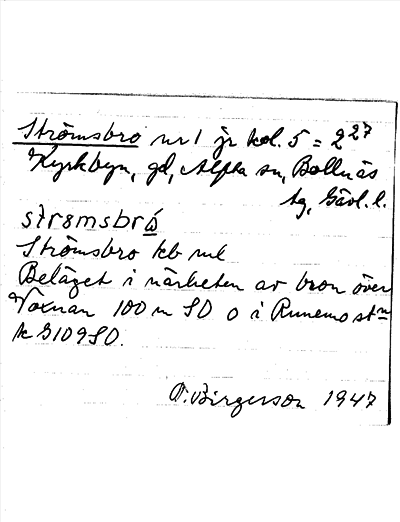 Strömsbro nr 1 jr kol. 5 = 2 27
Kyrkbyn, gd, Alfta sn, Bollnäs
tg, Gävl. l.
strømsbrå
Strömsbro kb nul
Beläget i närheten av bron över
Voxnan 100 m SO o i Runemo stn
k G109SO.
O. Birgerson 1947